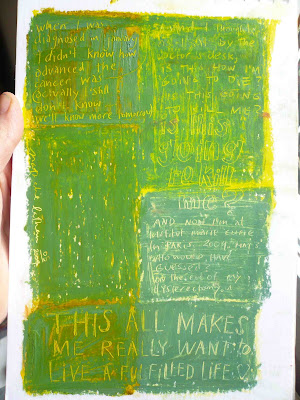 when I was
diagnosed in January
I didn't know how
advanced the
cancer was
actually I still
don't know
we'll know more tomorrow
thought
by the
doctor's desk,
IS THIS HOW I'M
GOING TO DIE?
IS THIS GOING
TO ME?
is this
going
to kill
me?
AND NOW I'M AT
marie curie
in PARIS, 2009, MAY
who would have
guessed?
hysterectomy.
THIS ALL MAKES
ME REALLY WANT to
LIVE A FULFILLED LIFE ♡